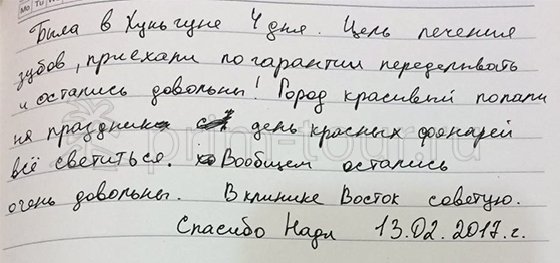 Была в Хуньчуне 4 дня. Цель лечения
зубов, приехали по гарантии переделывать
и остались довольны! Город красивый попали
на праздник день красных фонарей
всё светиться. Вообщем остались
очень довольны. В клинике Восток советую.
Спасибо Надя 13.02.2017.г.
prim-tour.ru